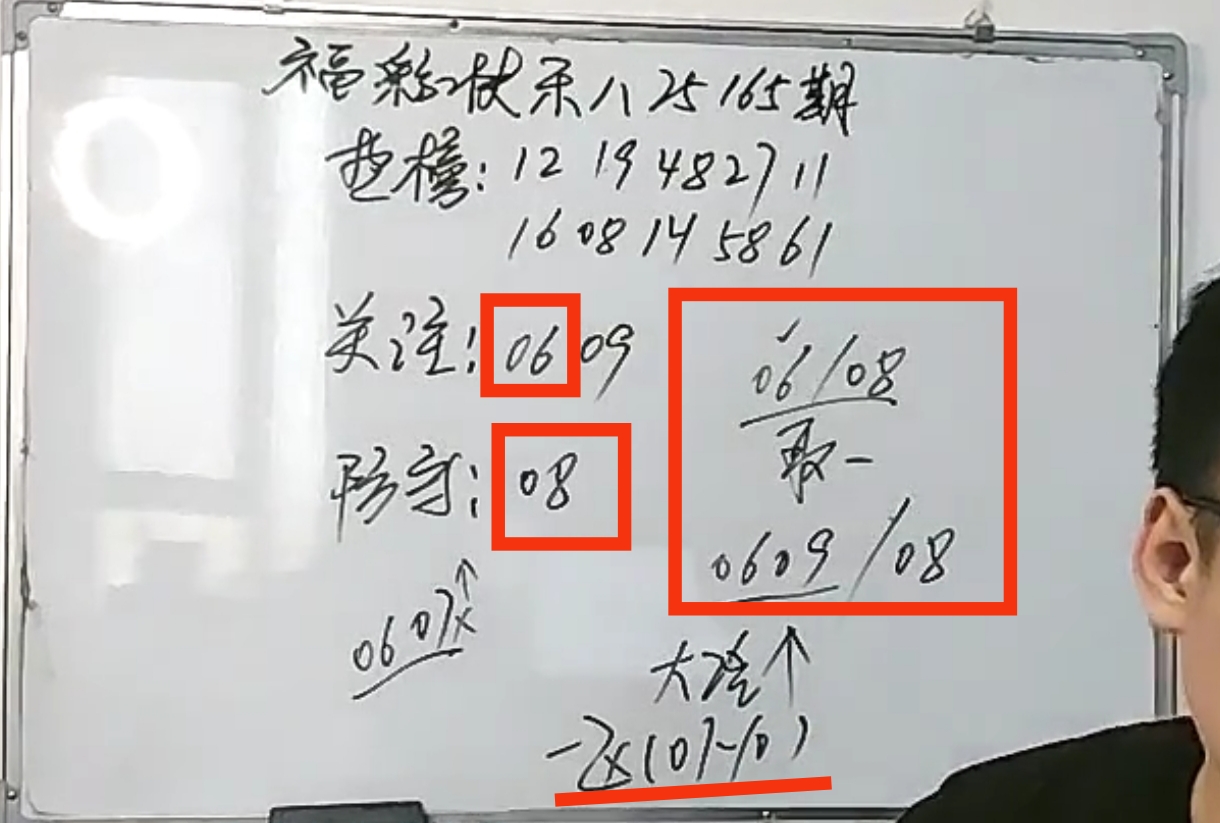 福彩快乐八25165期
垫榜:12 19 48 27 11
16 08 14 58 61
关注:06 09
防守:08
06/08
取一
0609/08
0607x↑
大冷↑
一区(01-10)